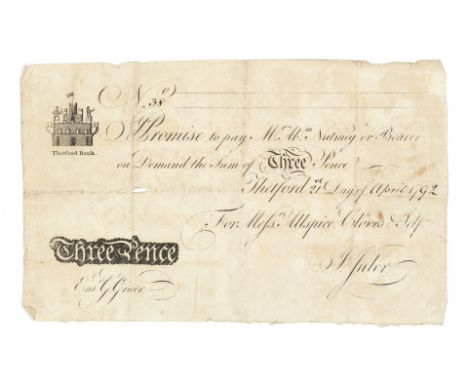 No. 38
Thetford Bank.
I Promise to pay Mr. Wm. Nutmeg or Bearer
on Demand the Sum of Three Pence
Thetford 21st Day of April 1792
For Messrs. Allspice, Cloves & Self
Three Pence
Entd. G. Grocer